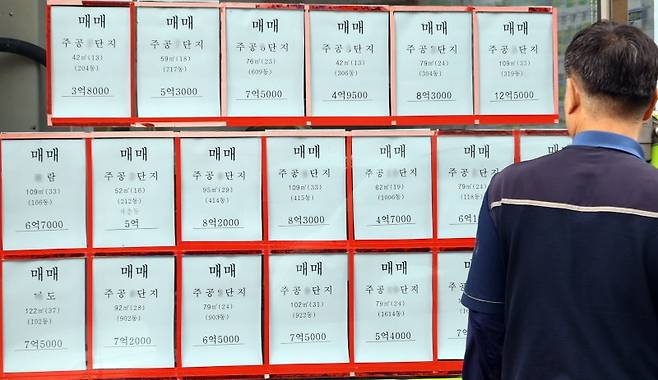 매매
주공 단지
42㎡(13)
(204동)
3억8000
매매
주공 단지
59㎡(18)
(717동)
5억3000
매매
주공 단지
76㎡(23)
(609동)
7억5000
매매
주공 단지
42㎡(13)
(306동)
4억9500
매매
주공 단지
79㎡(24)
8억3000
매매
주공 단지
109㎡(33)
(319동)
12억5000
매매
람
109㎡(33)
(106동)
6억7000
매매
주공 단지
52㎡(16)
(212동)
5억
매매
주공 단지
95㎡(29)
(414동)
8억2000
매매
주공 단지
109㎡(33)
(415동)
8억3000
매매
주공 단지
62㎡(19)
(1006동)
4억7000
매매
주공 단지
79㎡(24)
(118동)
매매
도
122㎡(37)
(102동)
7억5000
매매
주공 단지
92㎡(28)
(902동)
7억2000
매매
주공 단지
79㎡(24)
(903동)
6억5000
매매
주공 단지
102㎡(31)
(922동)
7억5000
매매
주공 단지
79㎡(24)
(1614동)
5억4000